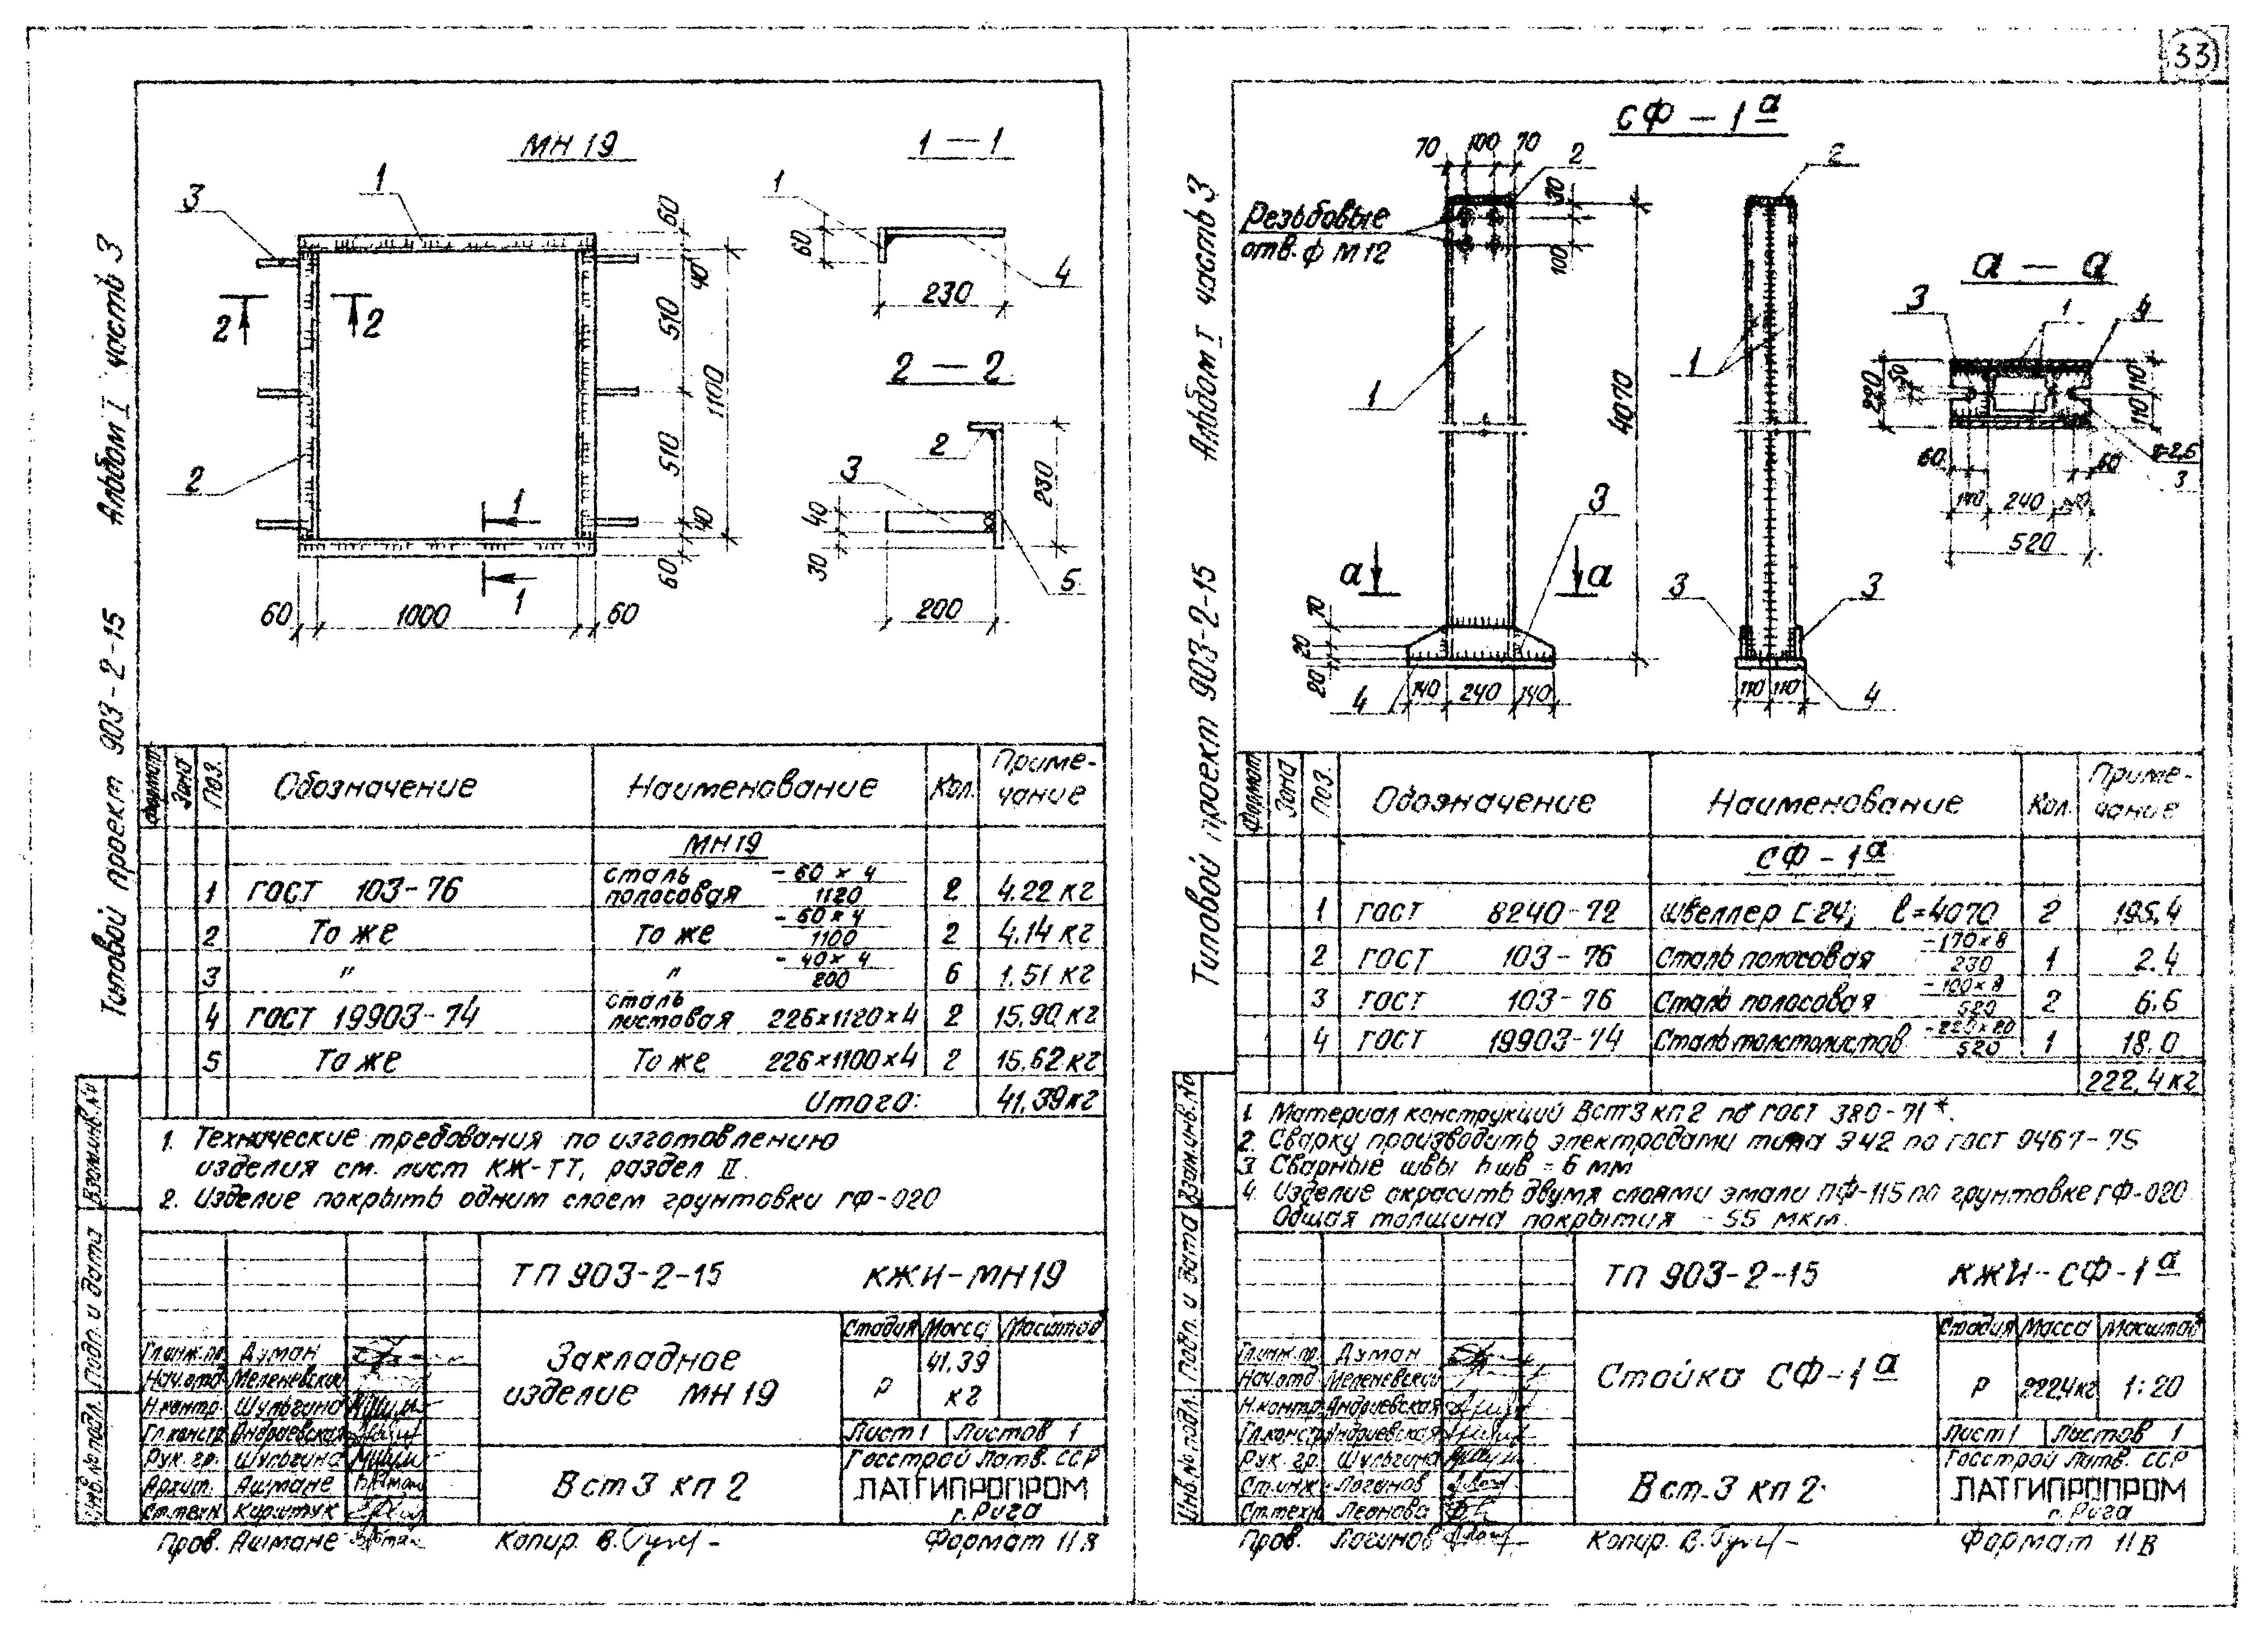 33
Альбом I часть 3
Типовой проект 903-2-15
МН 19
1 — 1
3
1
1
60
60
4
40
230
2
2
510
1100
2 — 2
510
2
3
230
2
1
40
40
30
60
5
1
200
60
1000
60
Формат
Зона
Поз.
Обозначение
Наименование
Кол.
Приме-
чание
МН19
1 ГОСТ 103-76 сталь полосовая - 60 × 4 / 1120 2 4.22 кг
2 То же То же - 60 × 4 / 1100 2 4.14 кг
3 " " - 40 × 4 / 200 6 1.51 кг
4 ГОСТ 19903-74 сталь листовая 226×1120×4 2 15.90 кг
5 То же То же 226×1100×4 2 15.62 кг
Итого: 41.39 кг
1. Технические требования по изготовлению
изделия см. лист КЖ-ТТ, раздел II.
2. Изделие покрыть одним слоем грунтовки ГФ-020
Взам.инв.№
Подп. и дата
Инв.№ подл.
ТП 903-2-15 КЖИ-МН19
Закладное
изделие МН 19
Стадия Масса Масштаб
Р 41.39
кг
Лист 1 Листов 1
В ст 3 кп 2
Госстрой Латв. ССР
ЛАТГИПРОПРОМ
г. Рига
Гл.инж.пр. Думан
Нач.отд Меленевский
Н.контр. Шульгина
Гл.констр. Андриевская
Рук. гр. Шульгина
Архит. Ашмане
Ст.техн. Кирштук
Пров. Ашмане
Копир. В.
Формат 11В
Альбом I часть 3
Типовой проект 903-2-15
СФ – 1а
70 100 70
2
2
30
Резьбовые
отв. ф М12
100
а — а
3
1
4
1
4070
1
220
50
110
110
60
60
3
140
240
140
520
3
а
а
3
3
70
20
20
4
140
240
140
110
110
4
Формат
Зона
Поз.
Обозначение
Наименование
Кол.
Приме-
чание
СФ – 1а
1 ГОСТ 8240-72 Швеллер [ 24; ℓ=4070 2 195.4
2 ГОСТ 103-76 Сталь полосовая -170×8 / 230 1 2.4
3 ГОСТ 103-76 Сталь полосовая -100×8 / 520 2 6.6
4 ГОСТ 19903-74 Сталь толстолистов -220×20 / 520 1 18.0
222.4 кг
1. Материал конструкций ВСт3 кп2 по ГОСТ 380-71*.
2. Сварку производить электродами типа Э42 по ГОСТ 9467-75
3. Сварные швы hшв = 6 мм
4. Изделие окрасить двумя слоями эмали ПФ-115 по грунтовке ГФ-020
Общая толщина покрытия – 55 мкм.
Взам.инв.№
Подп. и дата
Инв.№ подл.
ТП 903-2-15 КЖИ-СФ-1а
Стойка СФ-1а
Стадия Масса Масштаб
Р 222.4кг 1:20
Лист 1 Листов 1
В ст.3 кп 2.
Госстрой Латв. ССР
ЛАТГИПРОПРОМ
г. Рига
Гл.инж.пр. Думан
Нач.отд Меленевский
Н.контр. Андриевская
Гл.констр. Андриевская
Рук. гр. Шульгина
Ст.инж. Логинов
Ст.техн. Леонова
Пров. Логинов
Копир. В.
Формат 11В